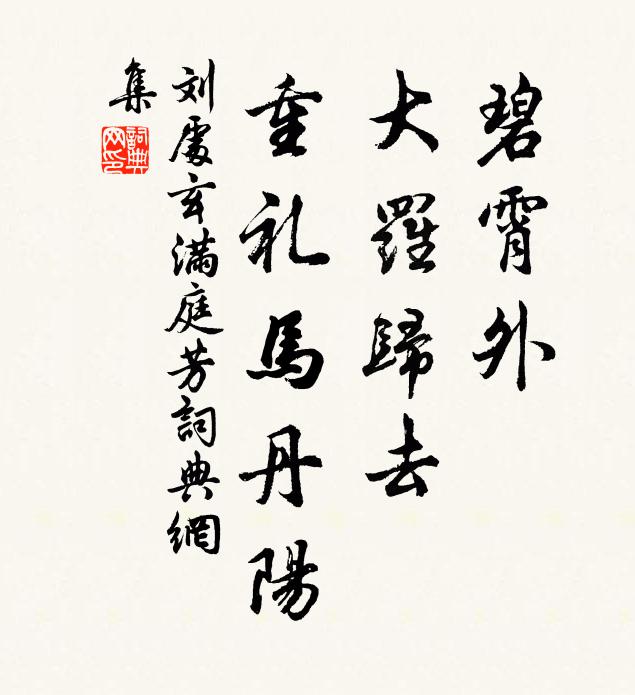 碧霄外
大羅歸去
重礼馬丹陽
刘處玄满庭芳詞典網
集
詞典網印